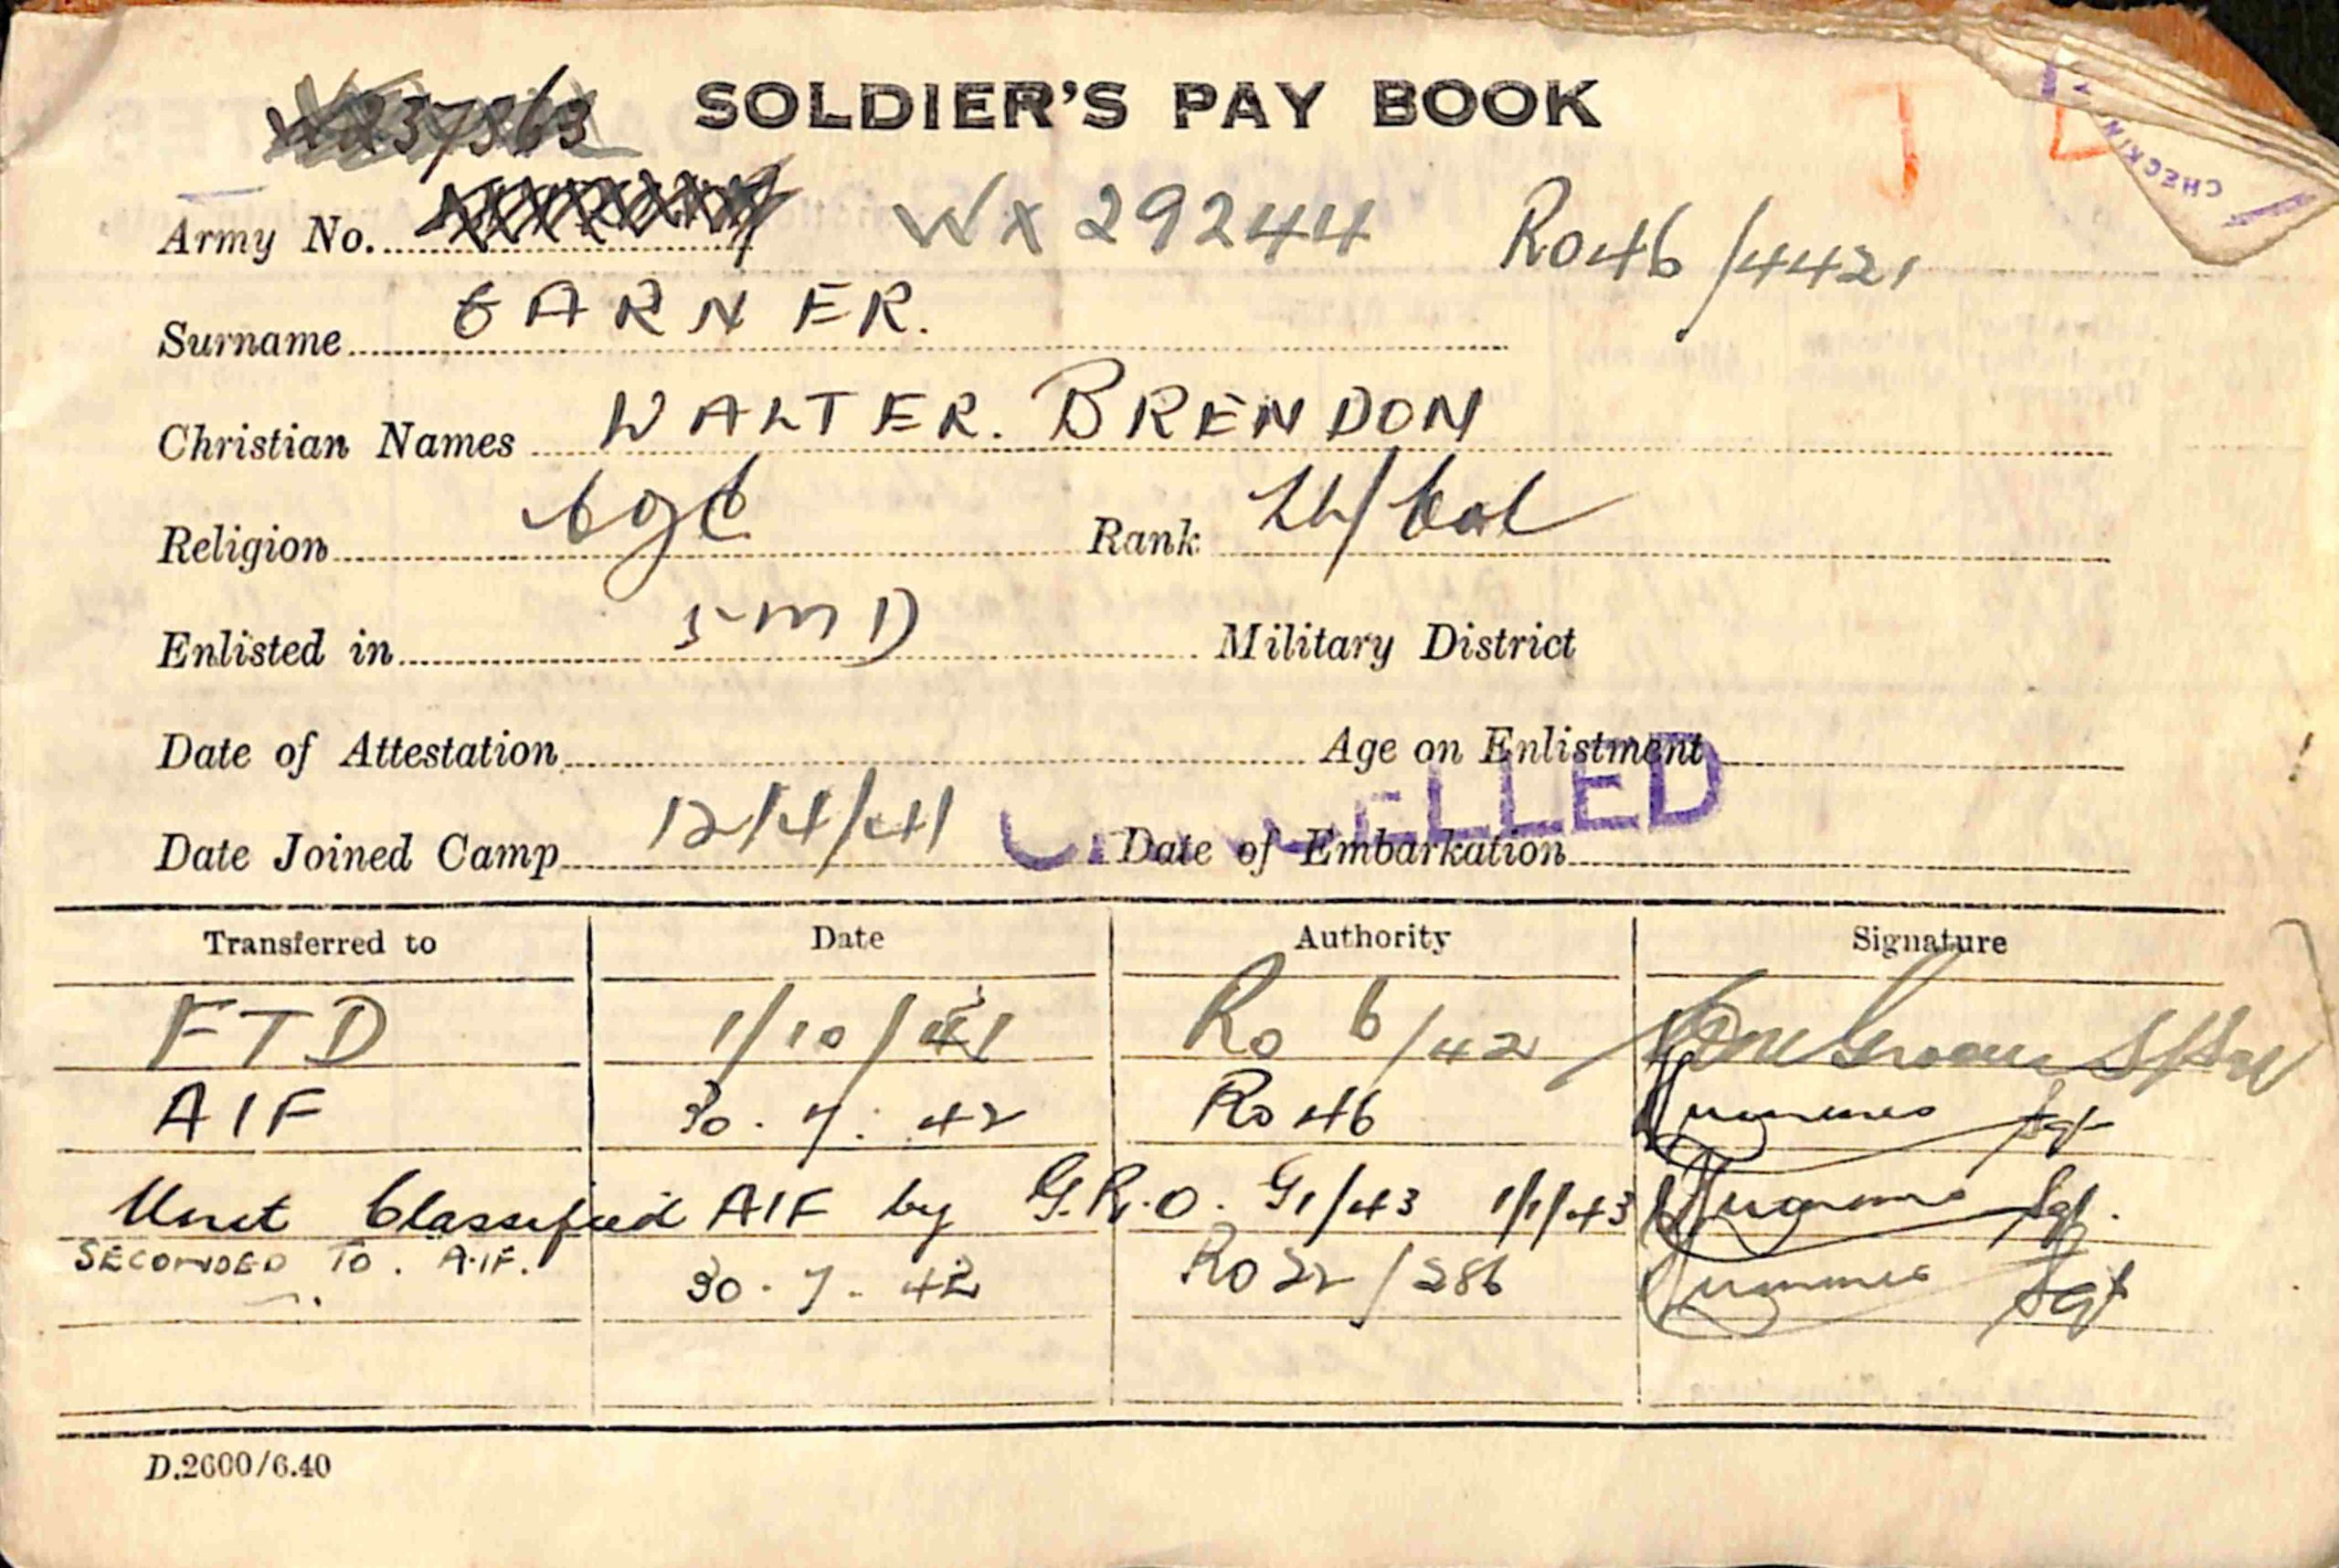 SOLDIER'S PAY BOOK
Army No. WX 29244 Ro 46/4421
Surname GARNER.
Christian Names WALTER. BRENDON
Religion CofE Rank Lt/Col
Enlisted in 5 M D Military District
Date of Attestation Age on Enlistment
CANCELLED
Date Joined Camp 12/4/41 Date of Embarkation
Transferred to Date Authority Signature
FTD 1/10/41 Ro 6/42
AIF 30.7.42 Ro 46 Sgt
Unit Classified AIF by G.R.O. G1/43 1/1/43 Sgt.
SECONDED TO. A.I.F. 30.7.42 Ro 22/286 Sgt
D.2600/6.40